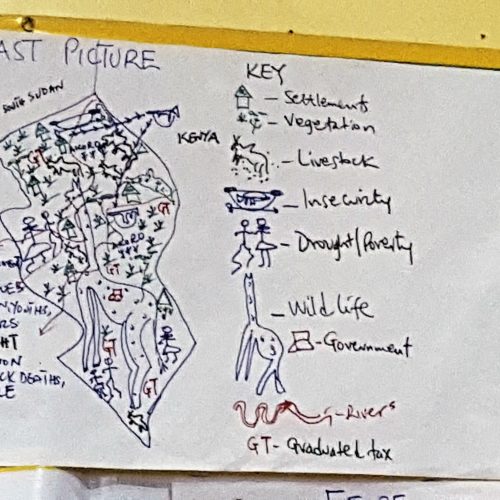 AST PICTURE
SOUTH SUDAN
KENYA
KEY
- Settlements
- Vegetation
- Livestock
- Insecurity
- Drought/Poverty
- Wild life
- Government
- Rivers
GT - Graduated tax
GT
GT
GT
GT
GT
YOUTHS,
RS
HT
ON
CK DEATHS,
LE